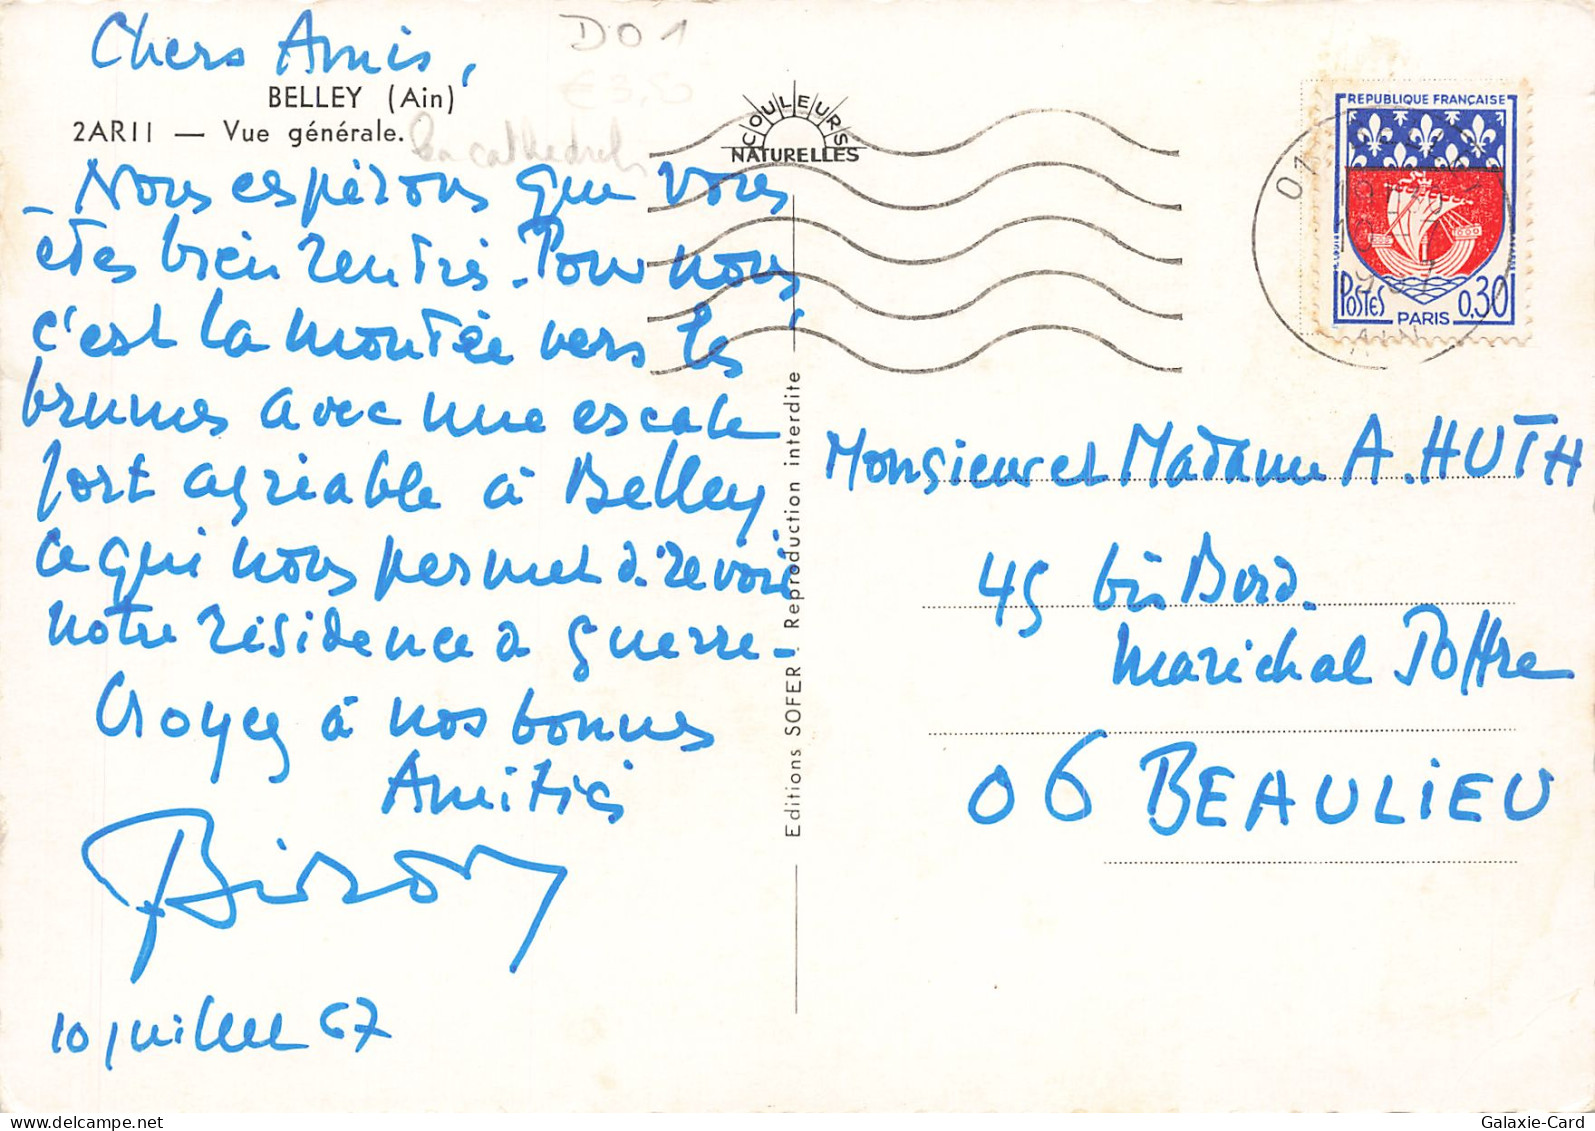 Chers Amis,
BELLEY (Ain)
2AR11 — Vue générale.
La cathédrale
D01
€3,50
Nous espérons que vous
êtes bien rentrés. Pour nous
c'est la montée vers les
brumes avec une escale
fort agréable à Belley
ce qui nous permet de revoir
notre résidence de guerre-
Croyez à nos bonnes
Amitiés
10 juillet 67
COULEURS
NATURELLES
Editions SOFER. Reproduction interdite
REPUBLIQUE FRANÇAISE
POSTES
PARIS
0,30
01
AIN
Monsieur et Madame A. HUTH
45 bis Bord.
Maréchal Joffre
06 BEAULIEU
Galaxie-Card